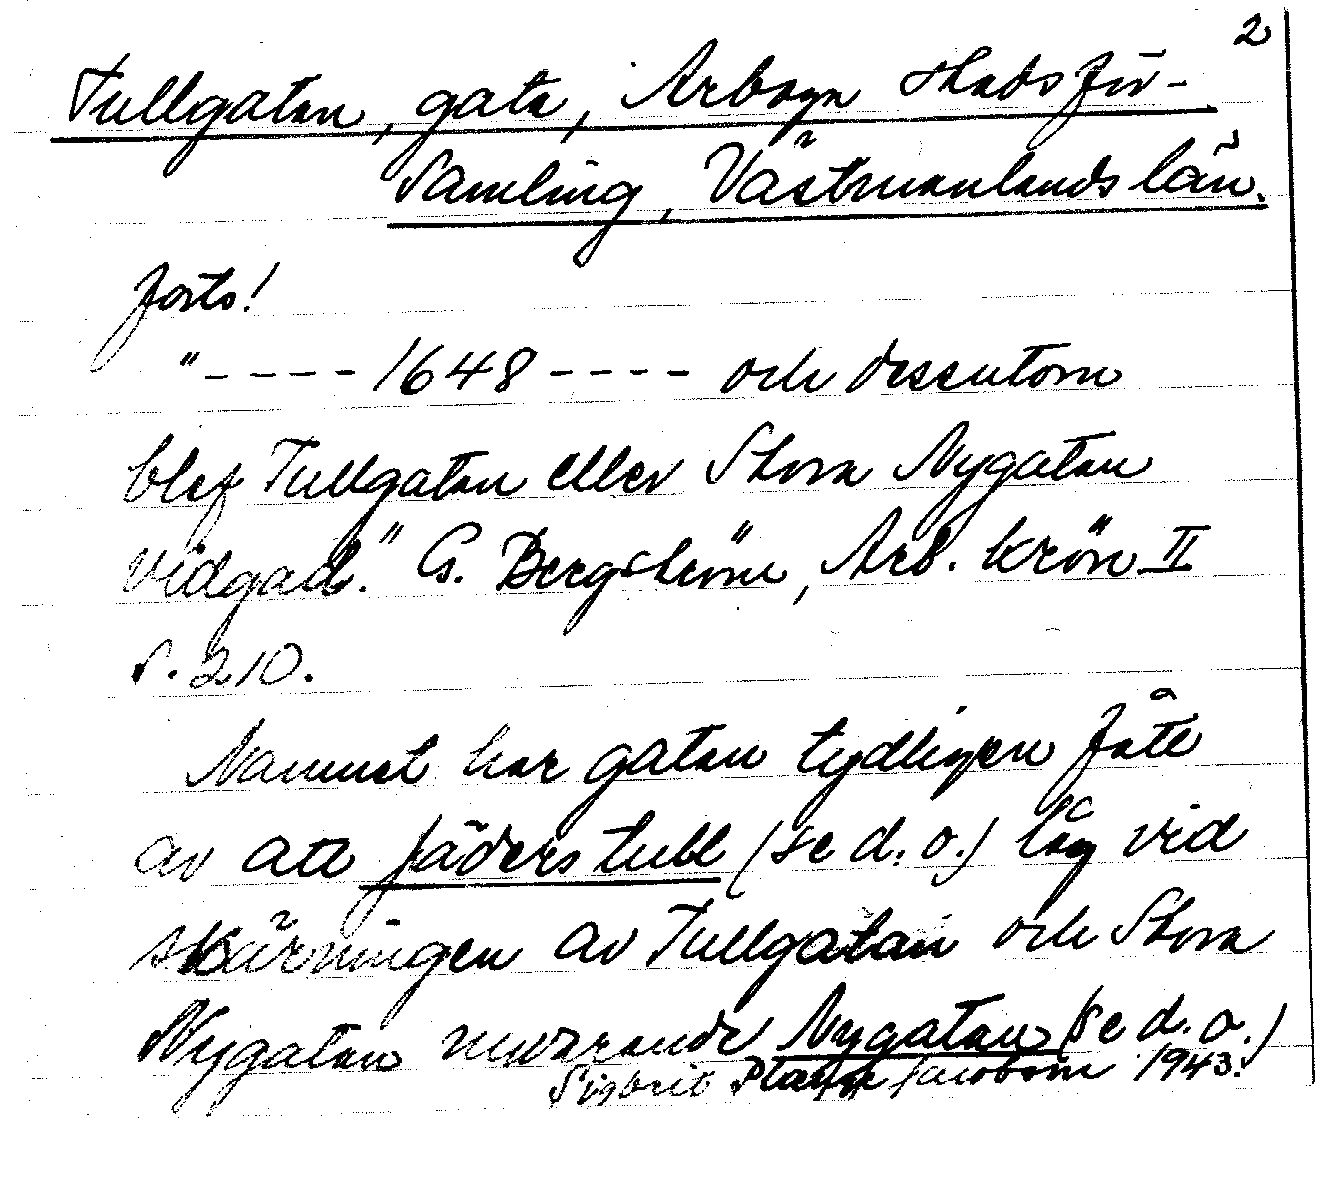 2
Tullgatan, gata, Arboga stadsför-
samling, Västmanlands län.
forts!
"---- 1648 ---- och dessutom
blef Tullgatan eller Stora Nygatan
vidgad." G. Bergström, Arb. krön. II
s. 210.
Namnet har gatan tydligen fått
av att fäderstull (se d. o.) låg vid
skärningen av Tullgatan och Stora
Nygatan nuvarande Nygatan (se d. o.)
Sigbrit Plænge Jacobson 1943.